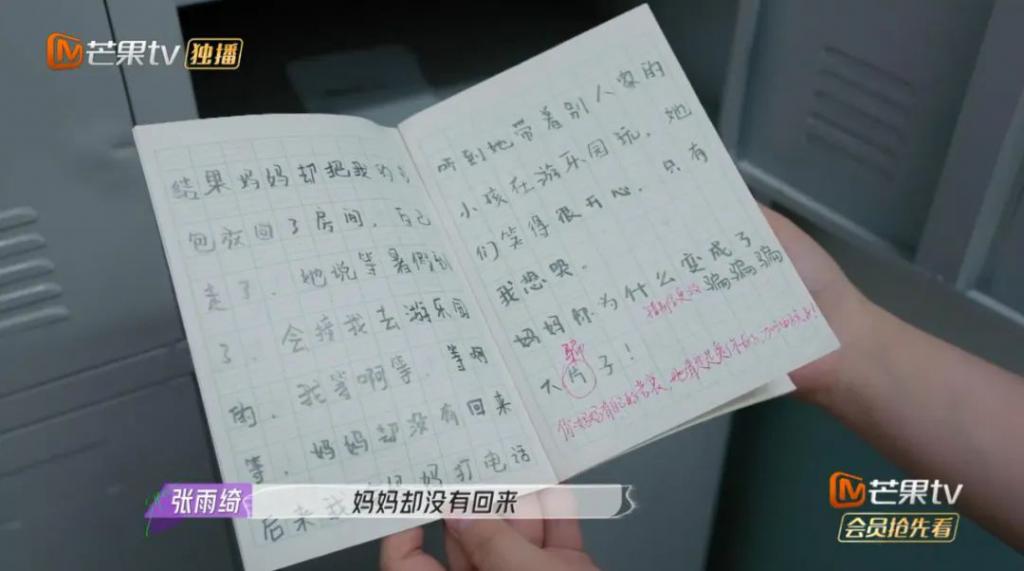 芒果tv 独播
结果妈妈却把我的书
包放回了房间，自己
走了。她说等暑假到
了，会接我去游乐园
的。我等啊等，等啊
等，妈妈却没有回来
后来我 妈妈打电话
听到她带着别人家的
小孩在游乐园玩，她
们笑得很开心，只有
我想哭。
妈妈你为什么变成了
骗骗骗
骗
大片子！
张雨绮
妈妈却没有回来
芒果tv
会员抢先看